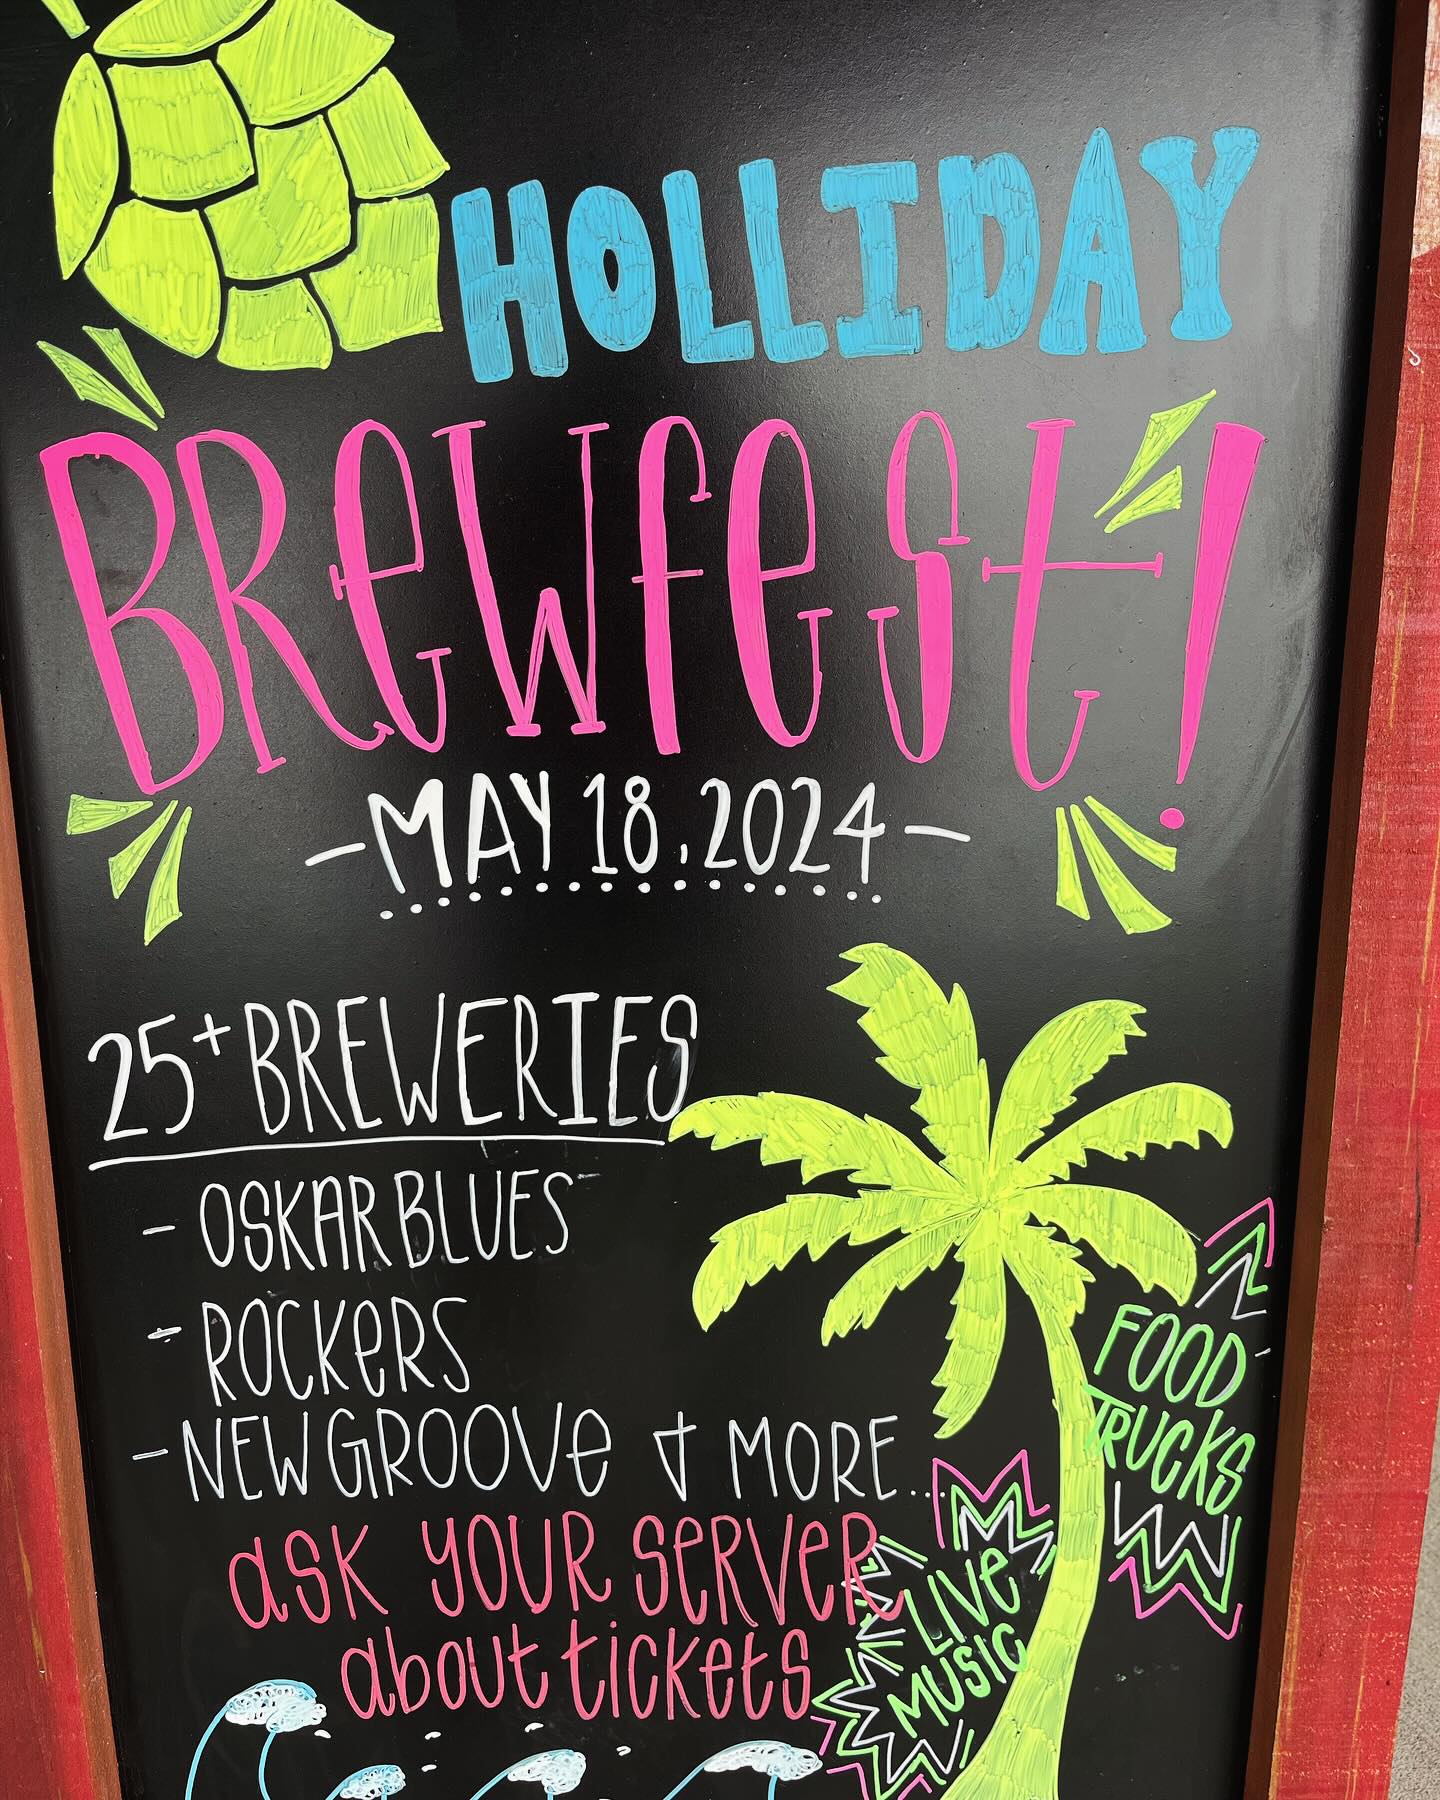 HOLLIDAY
BREWFEST!
-MAY 18, 2024-
25+ BREWERIES
- OSKAR BLUES
- ROCKERS
- NEW GROOVE & MORE...
ask YOUR SERVER
about tickets
FOOD
TRUCKS
LIVE
MUSIC